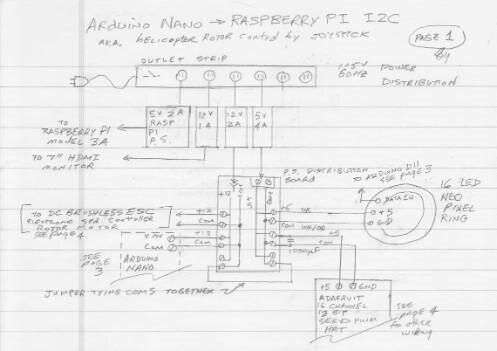 ARDUINO NANO → RASPBERRY PI I2C
AKA. HELICOPTER ROTOR CONTROL BY JOYSTICK
PAGE 1
OUTLET STRIP
115V
60HZ
POWER
DISTRIBUTION
5V 2A
RASP
PI
P.S.
12V
1A
12V
2A
5V
4A
TO
RASPBERRY PI
MODEL 3A
TO 7" HDMI
MONITOR
P.S. DISTRIBUTION
BOARD
TO ARDUINO D11
SEE PAGE 3
16 LED
NEO
PIXEL
RING
DATA IN
+5
GND
TO DC BRUSHLESS ESC
ELECTRONIC SPD CONTROLLER
ROTOR MOTOR
SEE PAGE 4
+12
COM
+12
COM
VIN
COM
ARDUINO
NANO
SEE
PAGE
3
+5
COM
+5
COM
1000µF
JUMPER TYING COMS TOGETHER
+5
GND
ADAFRUIT
16 CHANNEL
12 BIT
SERVO PWM
HAT
SEE
PAGE 4
TO OTHER
WIRING